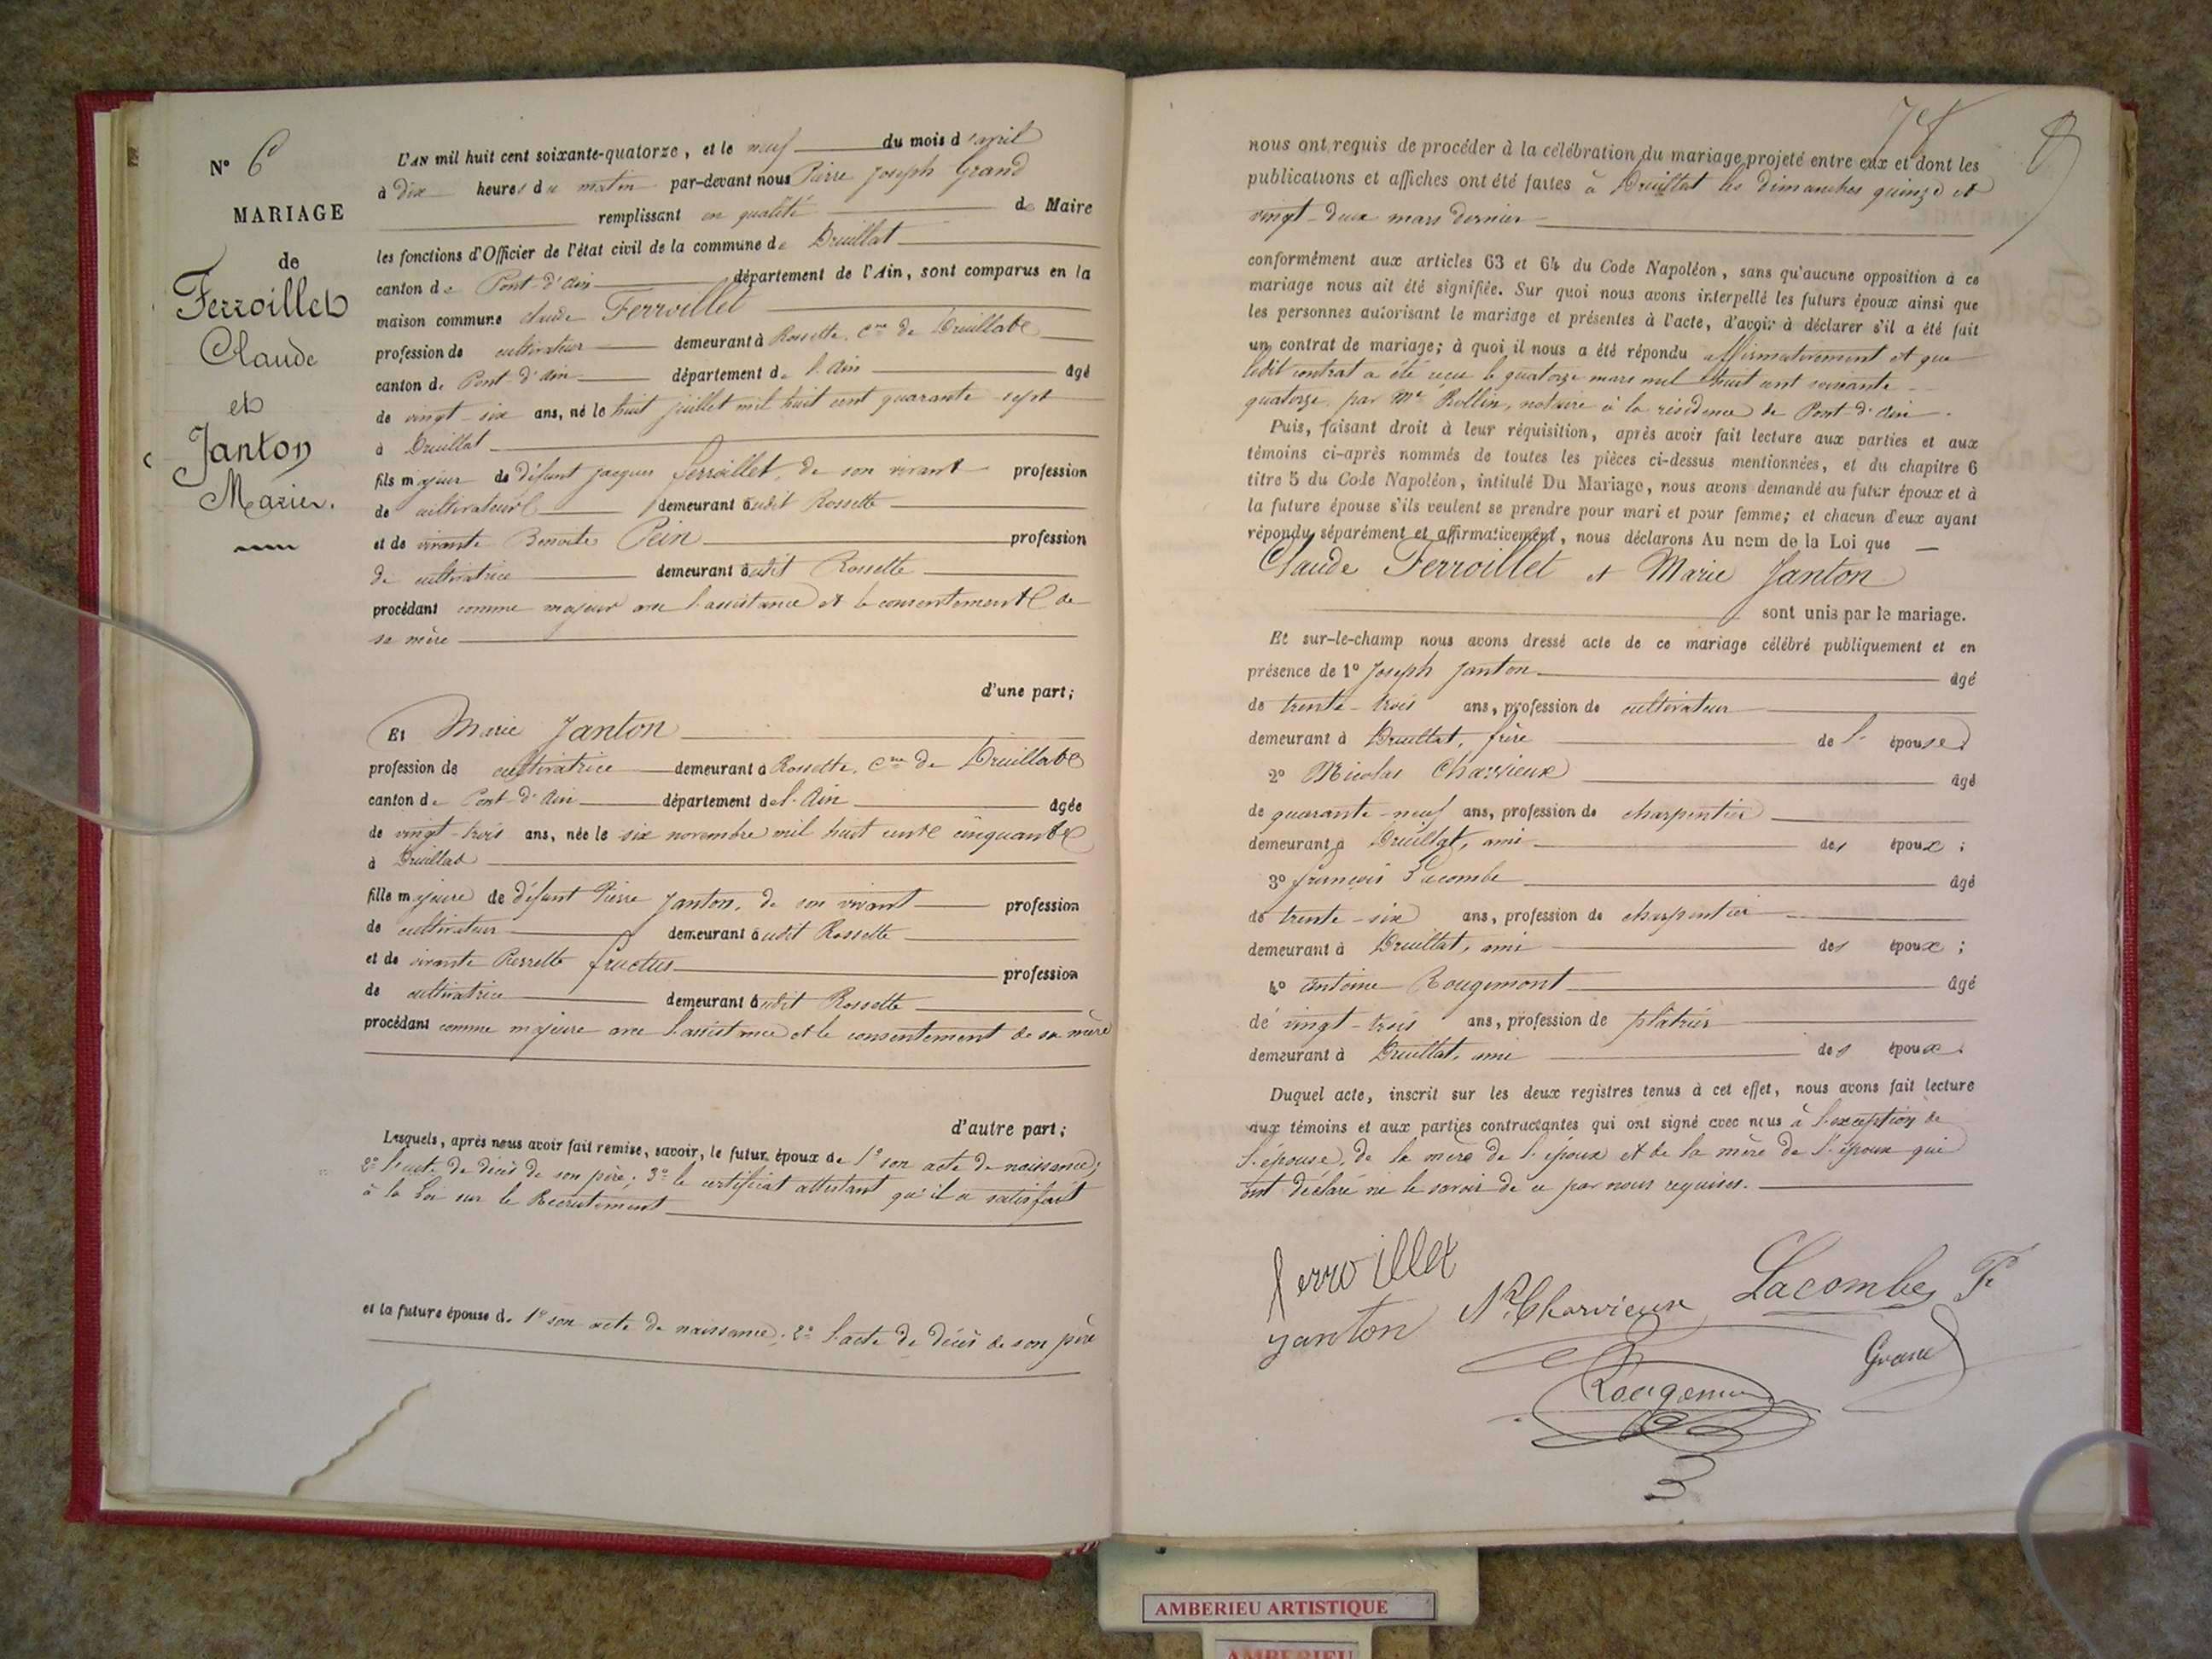 N° 6
MARIAGE
de
Ferroillet
Claude
et
Janton
Marie.
L'AN mil huit cent soixante-quatorze, et le neuf du mois d'avril
à dix heures du matin par-devant nous Pierre Joseph Grand
remplissant en qualité de Maire
les fonctions d'Officier de l'état civil de la commune de Druillat
canton de Pont-d'Ain département de l'Ain, sont comparus en la
maison commune Claude Ferroillet
profession de cultivateur demeurant à Rossette, Cne de Druillat
canton de Pont-d'Ain département de l'Ain âgé
de vingt-six ans, né le huit juillet mil huit cent quarante-sept
à Druillat
fils majeur de défunt Jacques Ferroillet, de son vivant profession
de cultivateur demeurant audit Rossette
et de vivante Benoite Pein profession
de cultivatrice demeurant audit Rossette
procédant comme majeur avec l'assistance et le consentement de
sa mère
d'une part;
Et Marie Janton
profession de cultivatrice demeurant à Rossette, Cne de Druillat
canton de Pont-d'Ain département de l'Ain âgée
de vingt-trois ans, née le six novembre mil huit cent cinquante
à Druillat
fille majeure de défunt Pierre Janton, de son vivant profession
de cultivateur demeurant audit Rossette
et de vivante Pierrette Fructus profession
de cultivatrice demeurant audit Rossette
procédant comme majeure avec l'assistance et le consentement de sa mère
d'autre part;
Lesquels, après nous avoir fait remise, savoir, le futur époux de 1° son acte de naissance;
2° l'acte de décès de son père; 3° le certificat attestant qu'il a satisfait
à la Loi sur le Recrutement
et la future épouse de 1° son acte de naissance; 2° l'acte de décès de son père
8
nous ont requis de procéder à la célébration du mariage projeté entre eux et dont les
publications et affiches ont été faites à Druillat les dimanches quinze et
vingt-deux mars dernier
conformément aux articles 63 et 64 du Code Napoléon, sans qu'aucune opposition à ce
mariage nous ait été signifiée. Sur quoi nous avons interpellé les futurs époux ainsi que
les personnes autorisant le mariage et présentes à l'acte, d'avoir à déclarer s'il a été fait
un contrat de mariage; à quoi il nous a été répondu affirmativement et que
ledit contrat a été reçu le quatorze mars mil huit cent soixante-
quatorze par Me Rollin, notaire à la résidence de Pont-d'Ain.
Puis, faisant droit à leur réquisition, après avoir fait lecture aux parties et aux
témoins ci-après nommés de toutes les pièces ci-dessus mentionnées, et du chapitre 6
titre 5 du Code Napoléon, intitulé Du Mariage, nous avons demandé au futur époux et à
la future épouse s'ils veulent se prendre pour mari et pour femme; et chacun d'eux ayant
répondu séparément et affirmativement, nous déclarons Au nom de la Loi que
Claude Ferroillet et Marie Janton
sont unis par le mariage.
Et sur-le-champ nous avons dressé acte de ce mariage célébré publiquement et en
présence de 1° Joseph Janton âgé
de trente-trois ans, profession de cultivateur
demeurant à Druillat, frère de l'épouse
2° Nicolas Charvieux âgé
de quarante-neuf ans, profession de charpentier
demeurant à Druillat, ami des époux;
3° François Lacombe âgé
de trente-six ans, profession de charpentier
demeurant à Druillat, ami des époux;
4° Antoine Rougemont âgé
de vingt-trois ans, profession de plâtrier
demeurant à Druillat, ami des époux.
Duquel acte, inscrit sur les deux registres tenus à cet effet, nous avons fait lecture
aux témoins et aux parties contractantes qui ont signé avec nous à l'exception de
l'épouse, de la mère de l'époux et de la mère de l'épouse qui
ont déclaré ne le savoir de ce par nous requises.
ferroillet
Janton
N. Charvieux
Lacombe F
Grand
Rougemont
AMBERIEU ARTISTIQUE
AMBERIEU